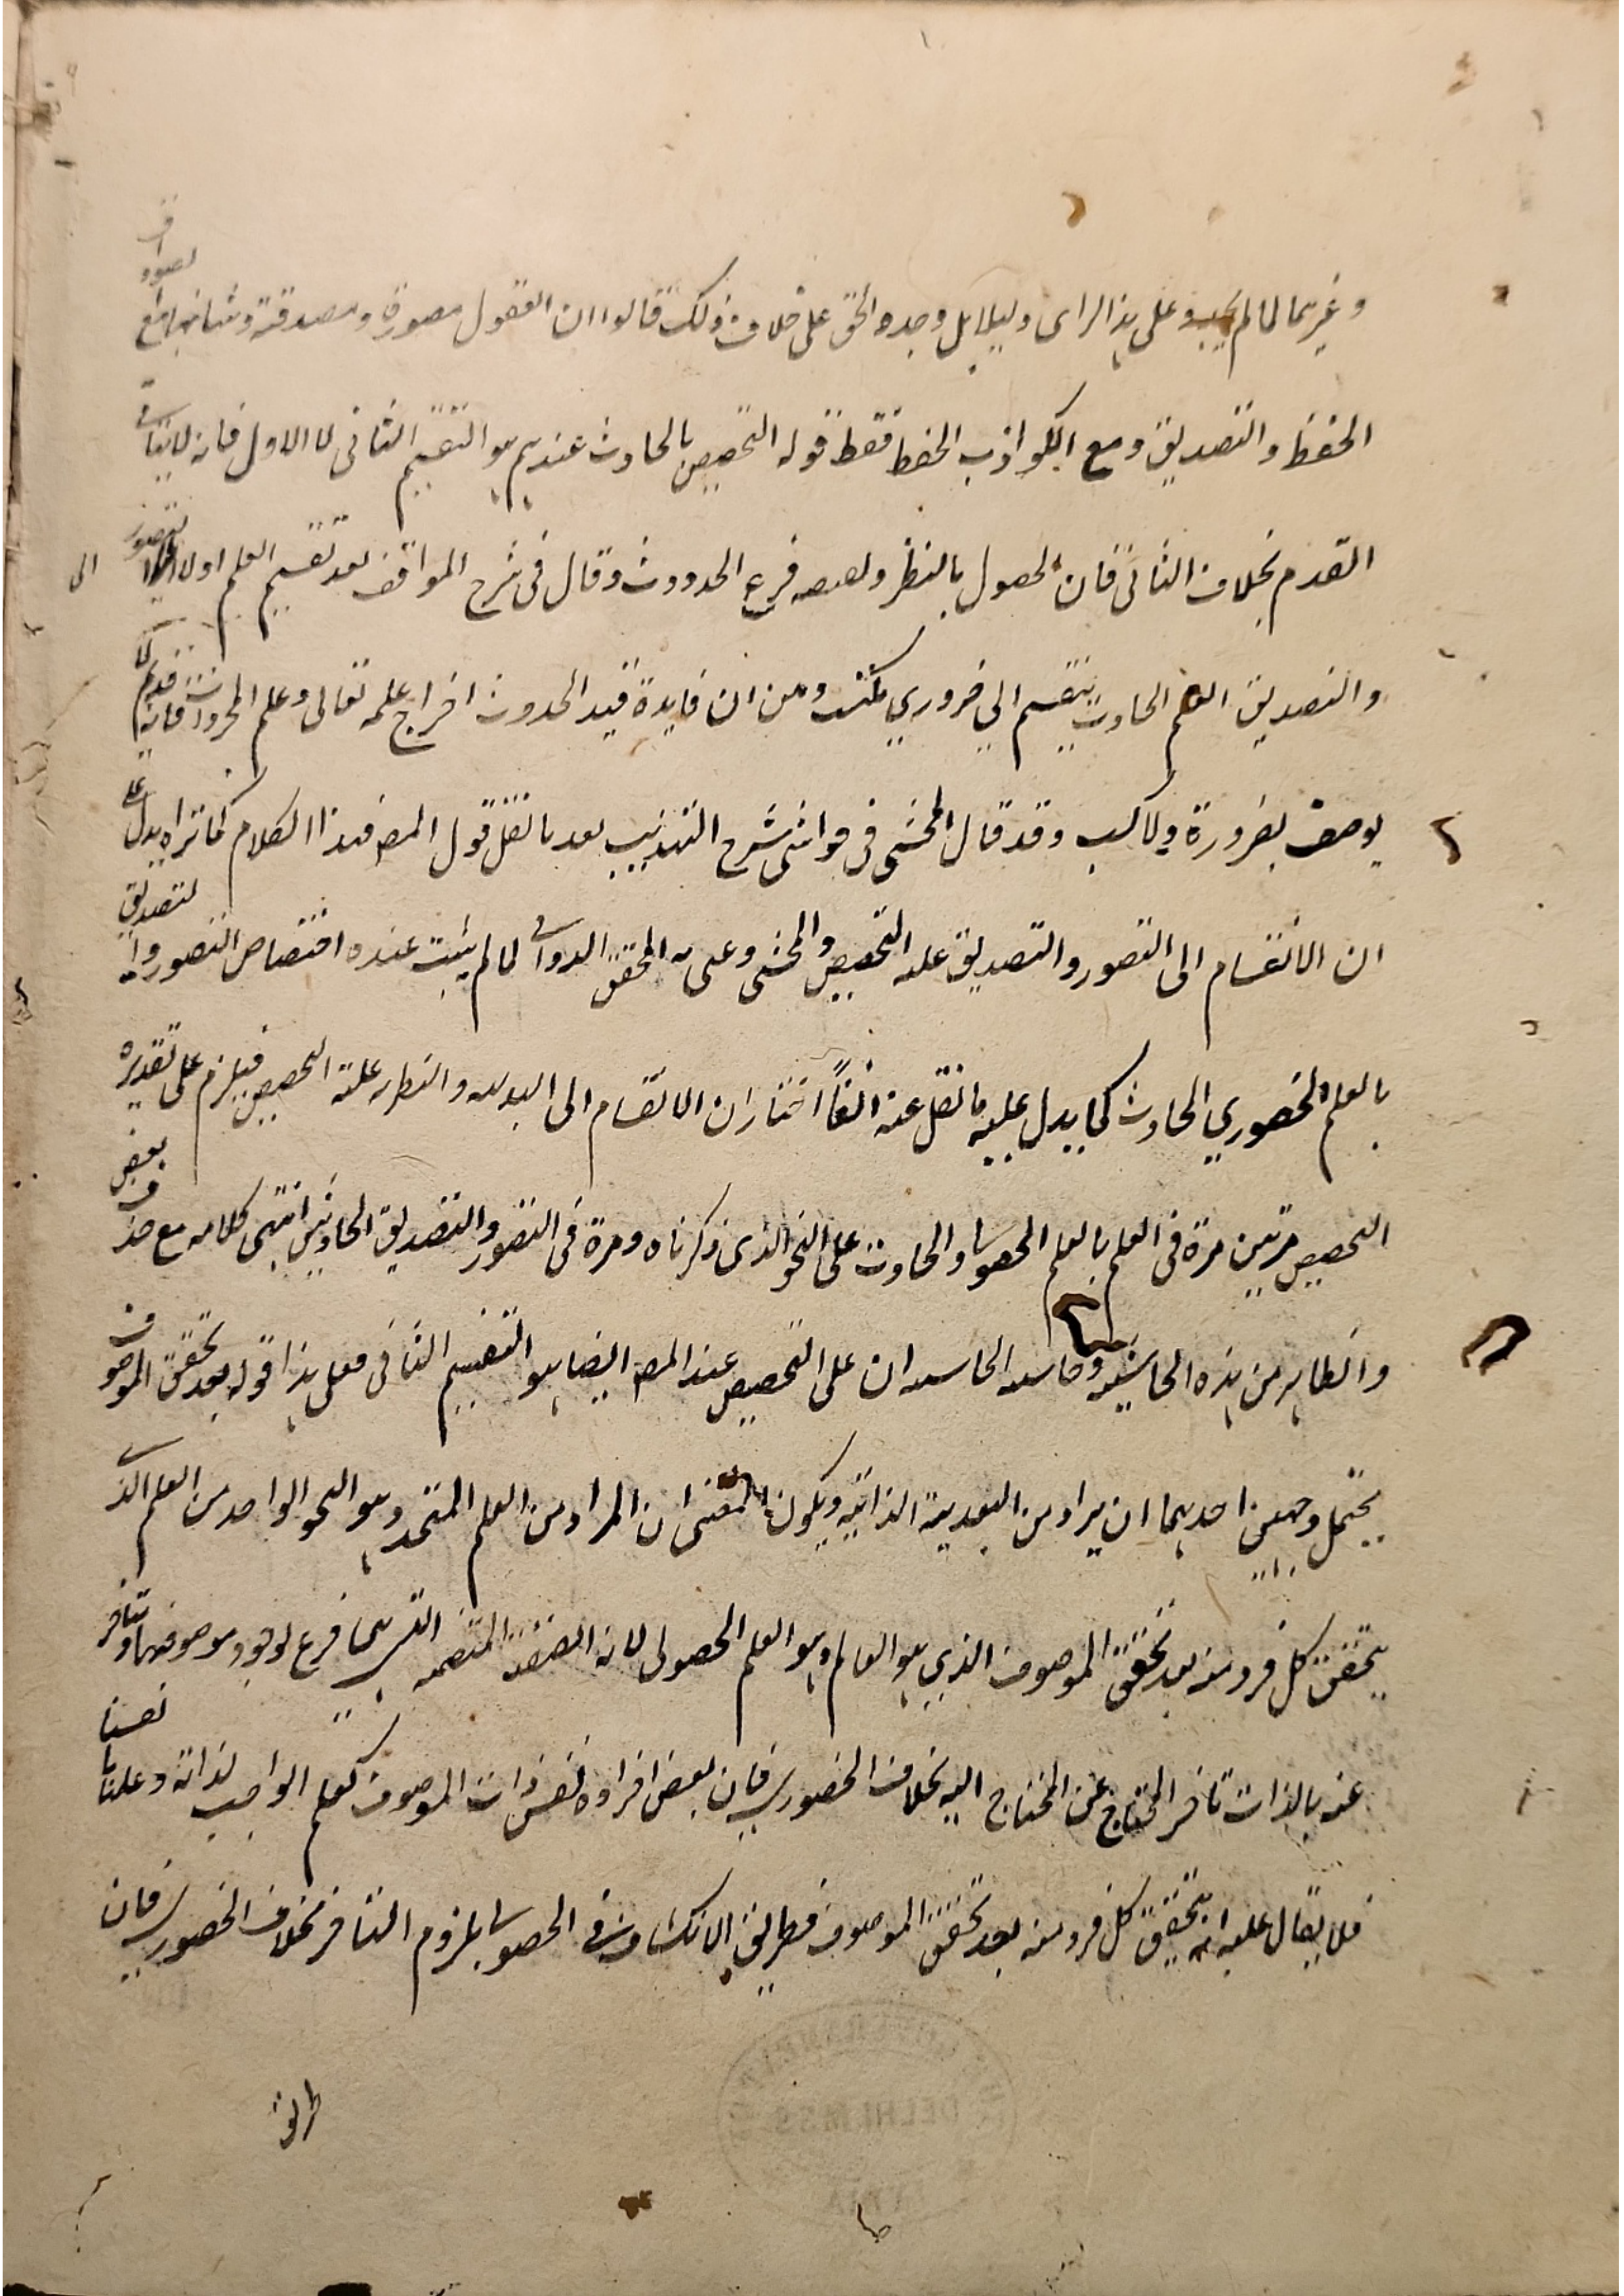 وغيرهما لما لم يجدوا على هذا الراى دليلا بل وجدوا الحق على خلاف ذلك قالوا ان العقول مصورة ومصدقة وشانها مع الصوادق
الحفظ والتصديق ومع الكواذب الحفظ فقط قوله التخصيص بالحادث عندهم هو التقسيم الثانى لا الاول فانه لا ينافى
القدم بخلاف الثانى فان الحصول بالنظر ولعبه فرع الحدوث وقال فى شرح المواقف بعد تقسيم العلم اولا الى التصور
والتصديق العلم الحادث ينقسم الي ضروري مكتسب ومن ان فايدة قيد الحدوث اخراج علمه تعالى وعلم المجردات فانه قديم لا
يوصف بضرورة ولا كسب وقد قال المحشى فى حواشى شرح التهذيب بعد ما نقل قول المص فهذا الكلام كما تراه يدل على
ان الانقسام الى التصور والتصديق علة التخصيص والمحشى المحقق الدوانى لما لم يثبت عنده اختصاص التصور والتصديق
بالعلم الحضوري الحادث كما يدل عليه ما نقل عنه انفاً اختار ان الانقسام الى البديهه والنظر علة التخصيص فيلزم على تقديره
التخصيص مرتين مرة فى العلم بالعلم الحصولى والحادث على النحو الذى ذكرناه ومرة فى التصور والتصديق الحادثين انتهى كلامه مع حذف بعض
والظاهر من هذه الحاشيه وحاسه الحاسه ان على التخصيص عند المص ايضا هو التقسيم الثانى فعلى هذا قوله بعد تحقق الموصوف
يحتمل وجهين احدهما ان يراد من البعدية الذاتيه ويكون المعنى ان المراد من العلم المتجدد هو النحو الواحد من العلم الذى
يتحقق كل فرد منه بعد تحقق الموصوف الذي هو العالم وهو العلم الحصولى لانه الصفة المنضمه التى هى فرع لوجود موصوفها وتتاخر
عنه بالذات تاخر المحتاج عن المحتاج اليه بخلاف الحضوري فان بعض افراده نفس ذات الموصوف كعلم الواجب لذاته وعلمنا بانفسنا
فلا يقال عليه انه يتحقق كل فرد منه بعد تحقق الموصوف فطريق الانكشاف فى الحصولى ملزوم التاخر بخلاف الحضوري فان
طريق